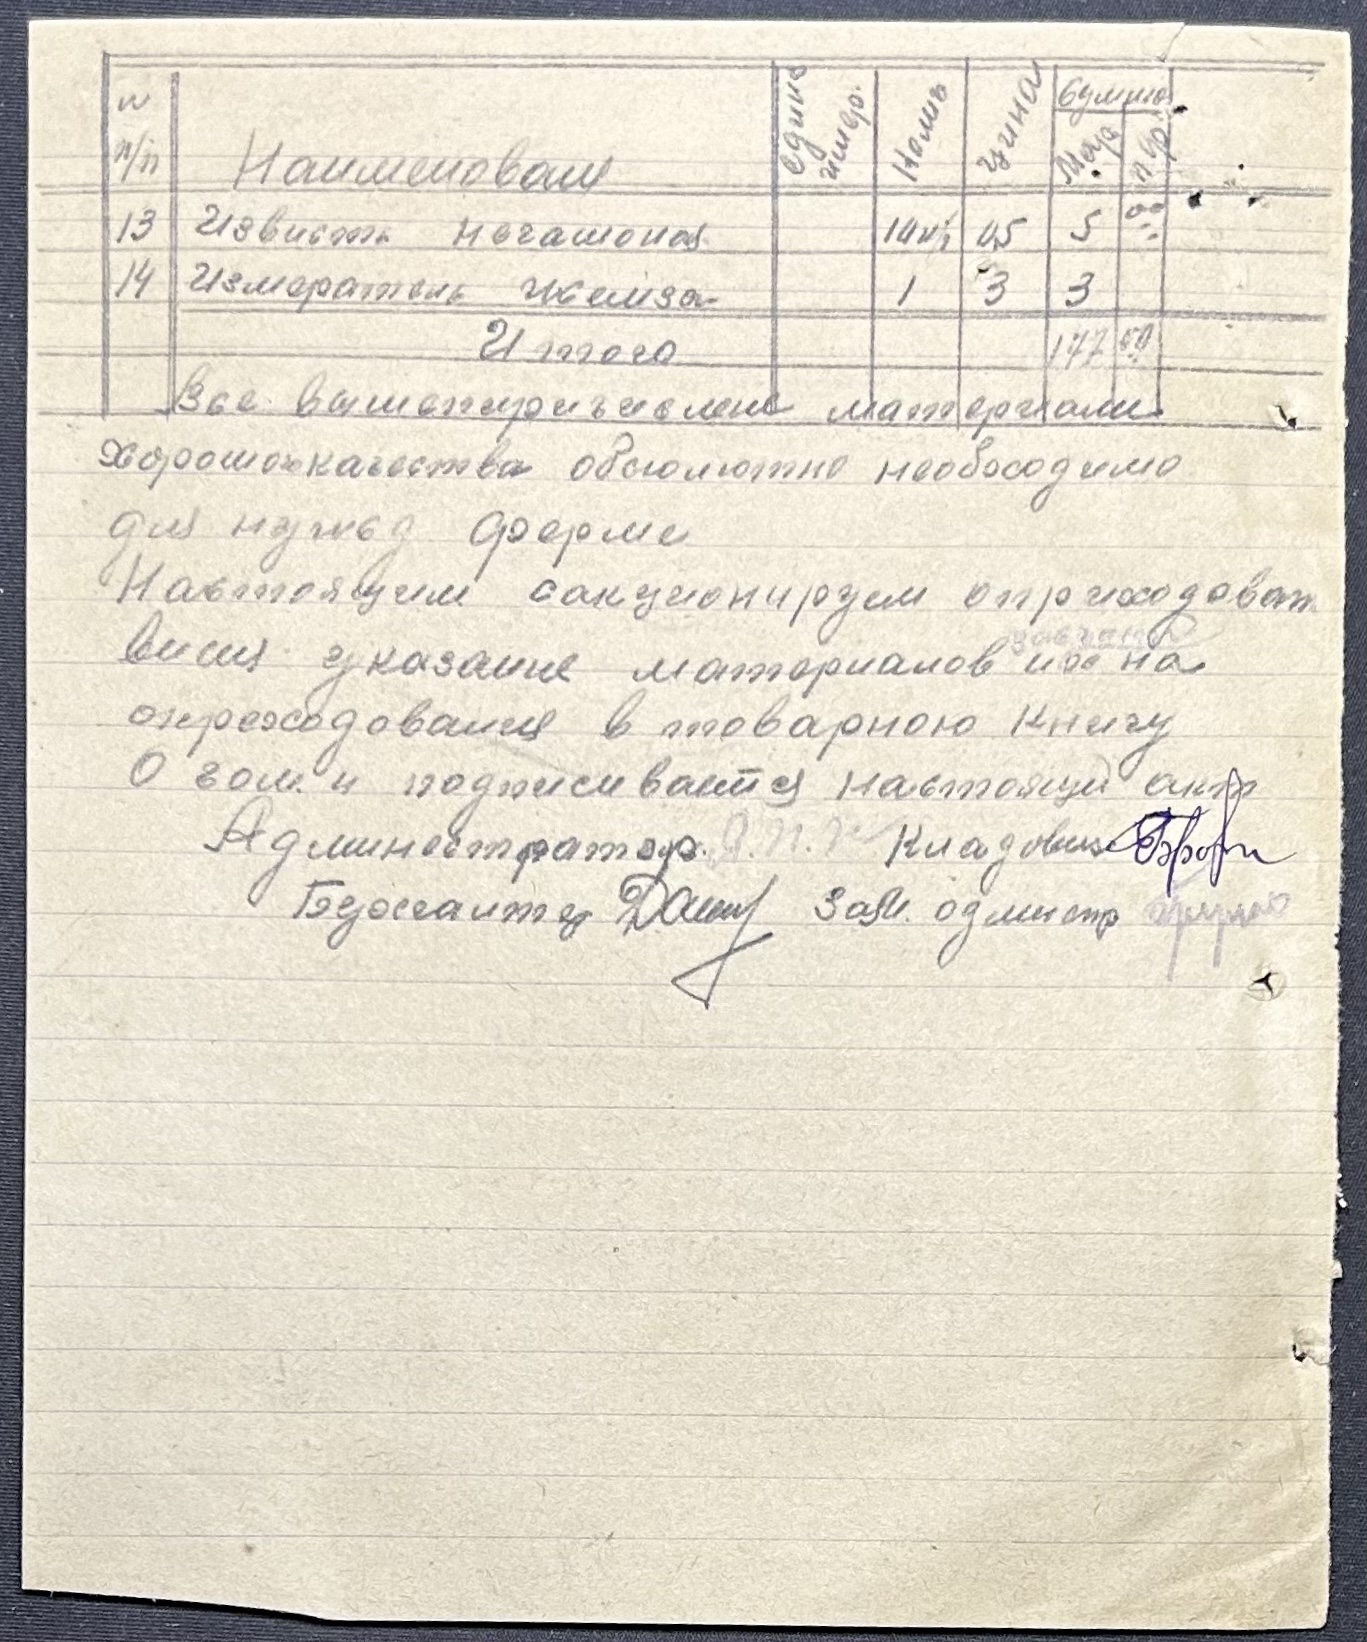 N п/п Наименовани един измер. Колич Цина Сумма Мар. пф.
13 Известь негашоная 10 кг 0,5 5 00
14 Измератель 1 3 3
Итого 177 50
Все вышепиричислени материали
хорошого качества обсюлютно необходимо
для нужьд ферме
Настоящим санкционируем оприходоват
указание материалов на
в товарною книгу
О вом и подписивается настоящи акт
Администратор Кладовщ
Бухгалтер Зам. одминстр